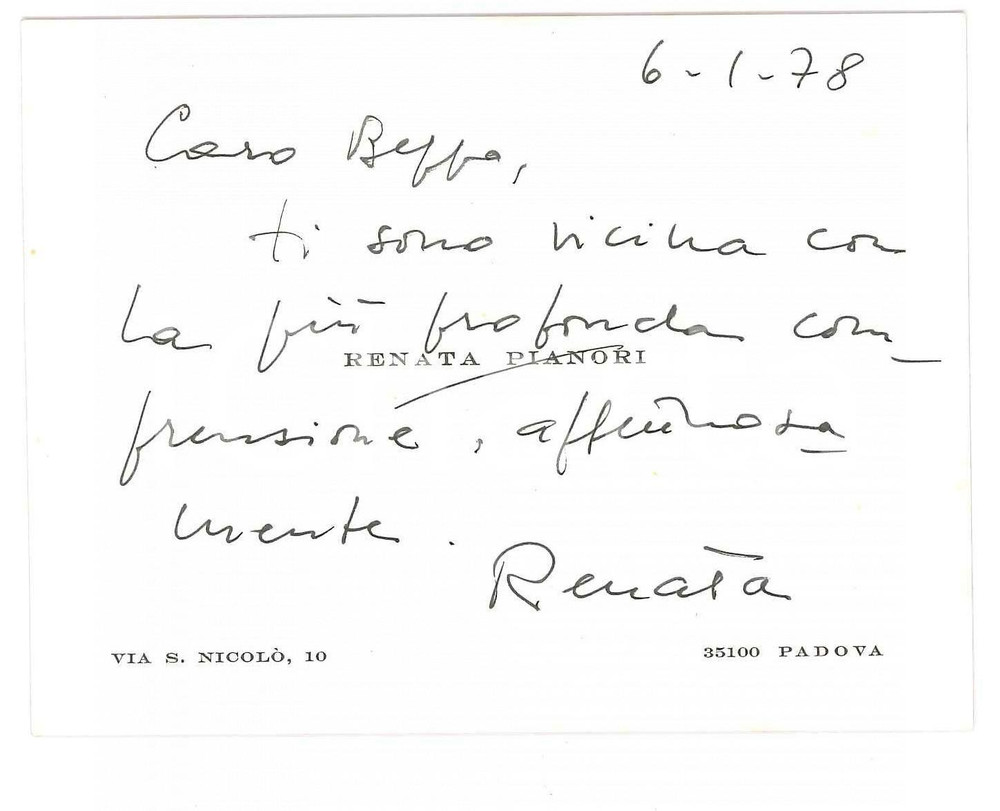 6-1-78
Caro Beppe,
ti sono vicina con
la più profonda com_
RENATA PIANORI
prensione, affettuosa
mente.
Renata
VIA S. NICOLÒ, 10 35100 PADOVA